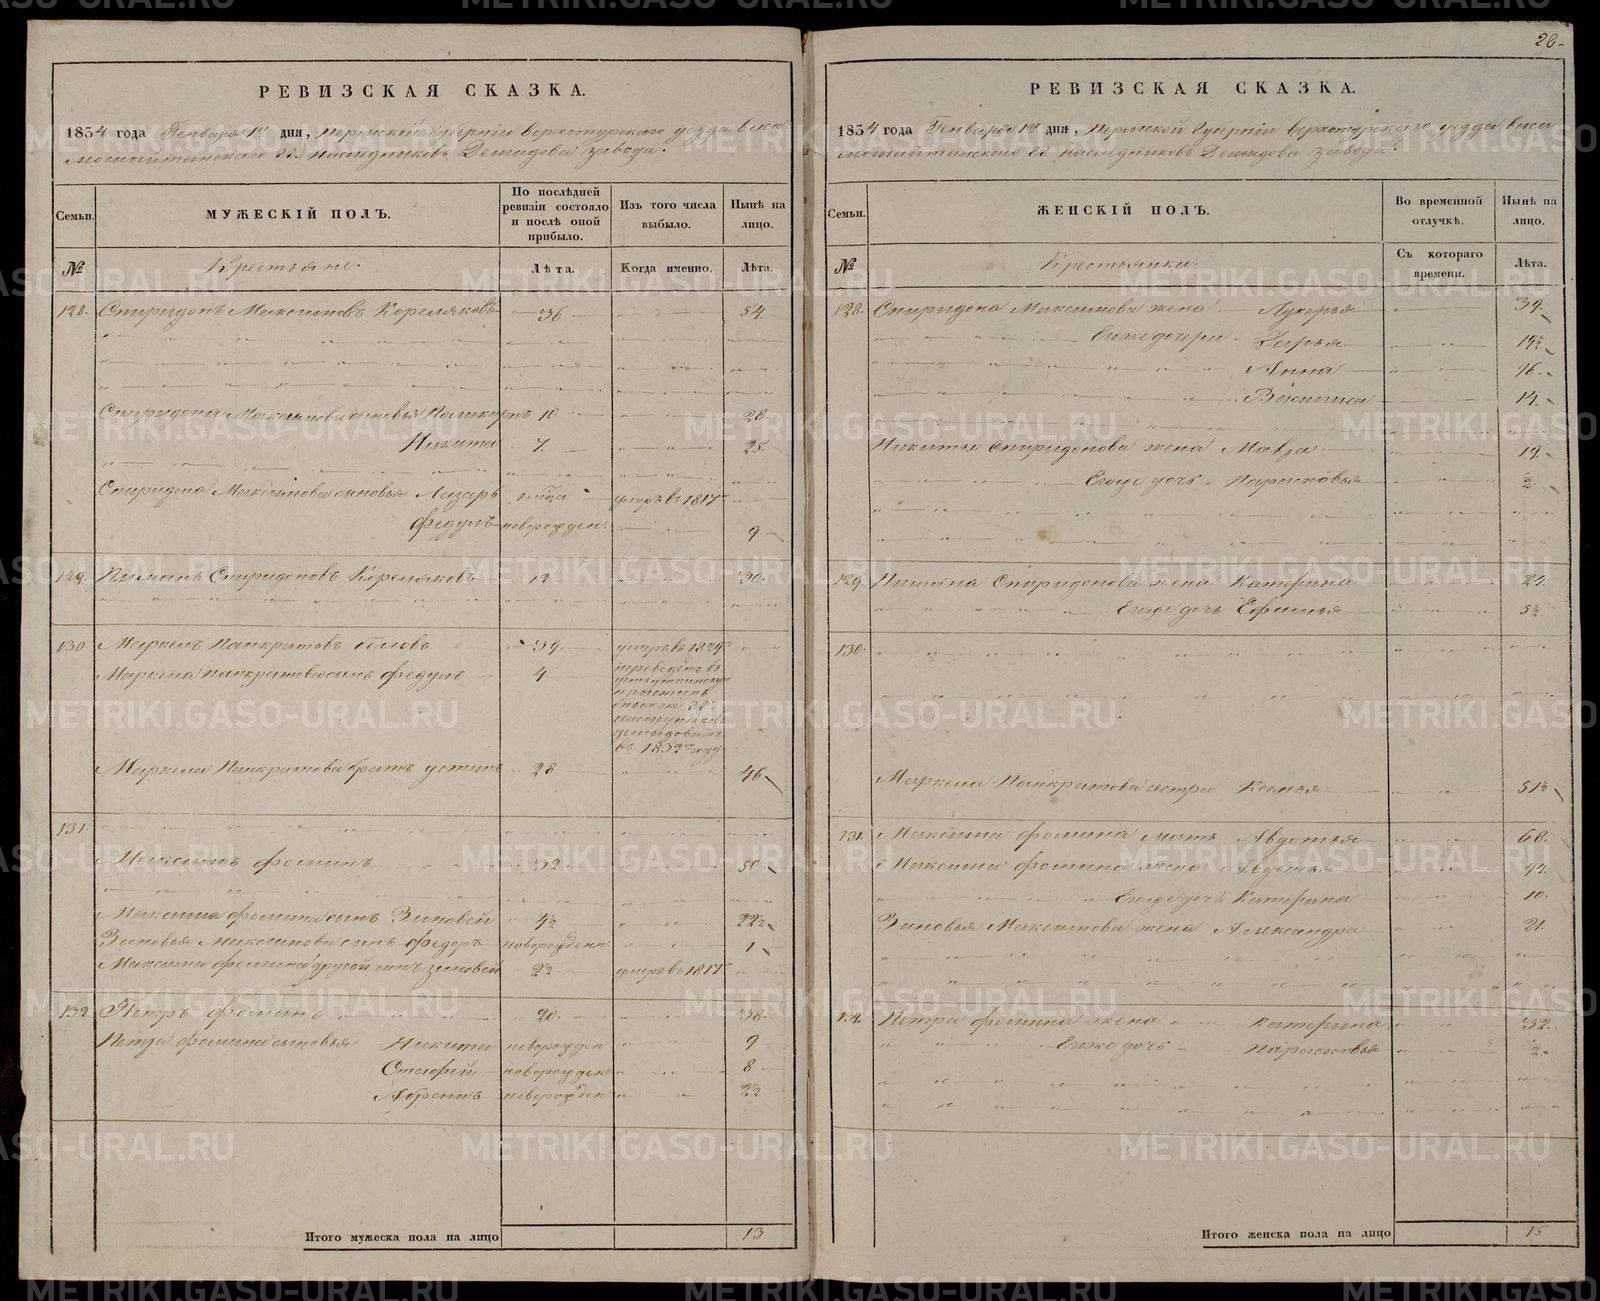 28.
РЕВИЗСКАЯ СКАЗКА.
1834 года Генваря 1го дня, Пермской Губернiи Верхотурскаго уезда Висимошайтанскаго гг. наследниковъ Демидова завода.
Семьи.
МУЖЕСКIЙ ПОЛЪ.
По послѣдней ревизiи состояло и послѣ оной прибыло.
Изъ того числа выбыло.
Нынѣ на лицо.
№
Крестьяне.
Лѣта.
Когда именно.
Лѣта.
128. Спиридонъ Максимовъ Кореляковъ 36 54.
Спиридона Максимова сыновья 10 28
Никита 7. 25.
Спиридона Максимова сыновья Лазарь умръ въ 1817
Федулъ новорожден. 9
129. Пиманъ Спиридоновъ Кореляковъ 12 30.
130. Маркелъ Панкратовъ 39. умръ въ 1829
Маркела Панкратова сынъ Федулъ 4 переведенъ въ
пристань
гг.
наследниковъ
Демидовыхъ
въ 1832 году
Маркела Панкратова братъ Устинъ 28 46
131.
Максимъ Фоминъ 32. 50.
Максима Фомина сынъ Зиновей 4½ 22½
Зиновья Максимова сынъ Федоръ новорожден. 1
Максима Фомина другой сынъ Зиновей умръ въ 1817
132 Петръ Фоминъ 20. 38.
Петра Фомина сыновья Никита новорожден 9
новорожден 8
Абрамъ новорожден
Итого мужеска пола на лицо 13
РЕВИЗСКАЯ СКАЗКА.
1834 года Генваря 1го дня, Пермской Губернiи Верхотурскаго уезда Висимошайтанскаго гг. наследниковъ Демидова завода.
Семьи.
ЖЕНСКIЙ ПОЛЪ.
Во временной отлучкѣ.
Нынѣ на лицо.
№
Крестьянки.
Съ котораго времени.
Лѣта.
128. Спиридона Максимова жена Лукерья 39.
Егоже дочери Дарья 19½
Анна 16.
Василиса 14.
Никиты Спиридонова жена Мавра 19.
Егоже дочь Парасковья
129. Пимана Спиридонова жена Катерина 24.
Егоже дочь Ефимья 5½
130.
Маркела Панкратова сестра Ксенья 51½
131. Максима Фомина мать Авдотья 68.
Максима Фомина жена Авдотья 44.
Егоже дочь Катерина 10.
Зиновья Максимова жена Александра 21.
132. Петра Фомина жена Катерина 32.
Егоже дочь Парасковья 2.
Итого женска пола на лицо 15
METRIKI.GASO-URAL.RU